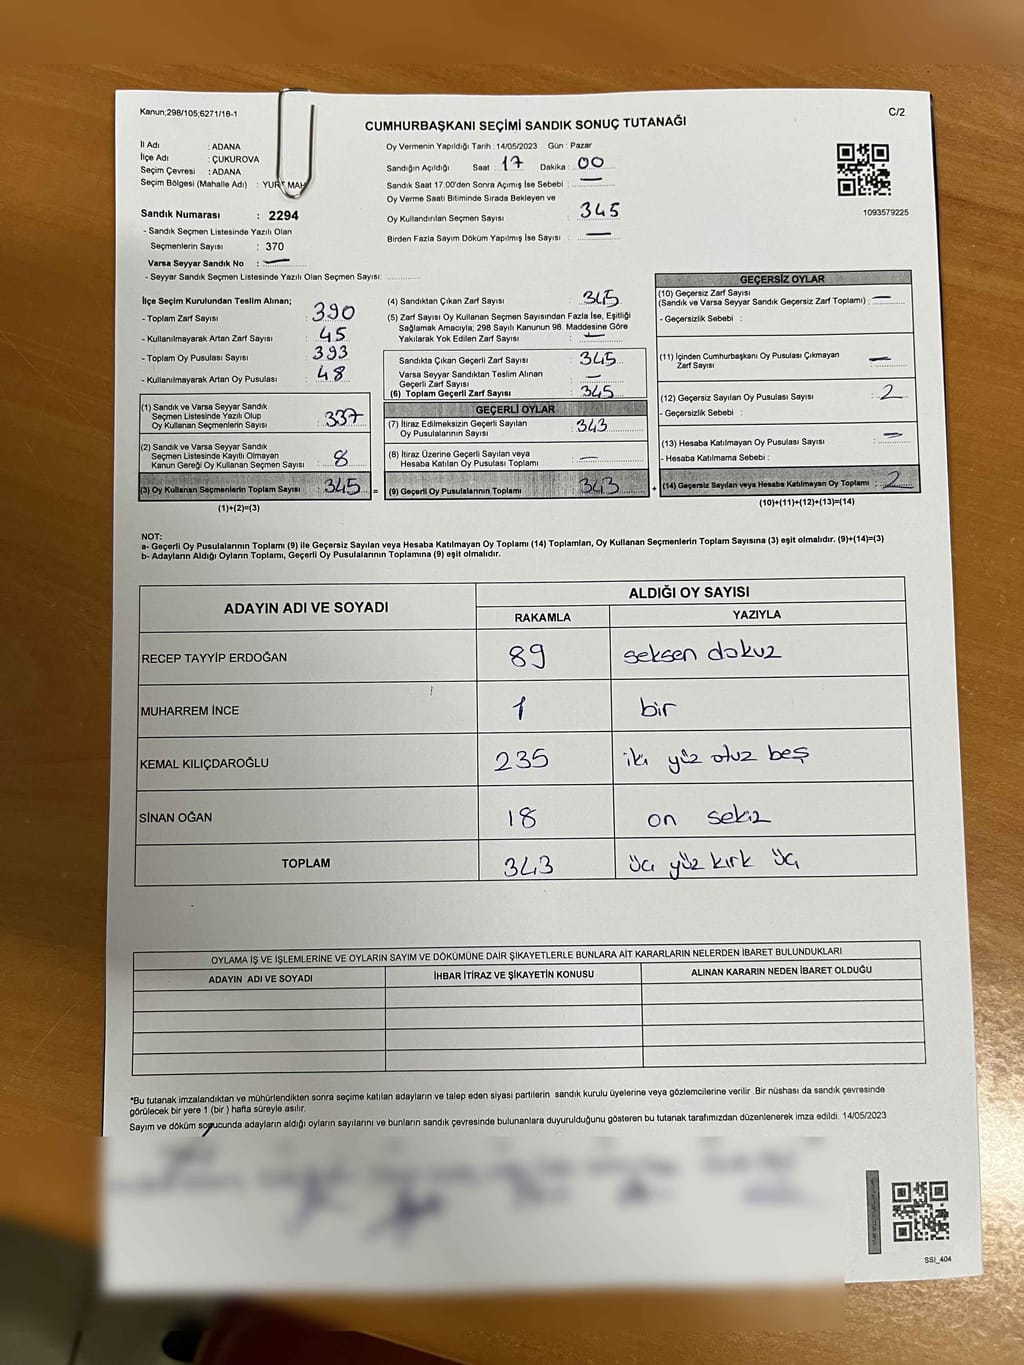 Kanun;298/105;6271/18-1
C/2
CUMHURBAŞKANI SEÇİMİ SANDIK SONUÇ TUTANAĞI
İl Adı : ADANA
İlçe Adı : ÇUKUROVA
Seçim Çevresi : ADANA
Seçim Bölgesi (Mahalle Adı) : YURT MAH
Sandık Numarası : 2294
- Sandık Seçmen Listesinde Yazılı Olan
Seçmenlerin Sayısı : 370
Varsa Seyyar Sandık No : —
- Seyyar Sandık Seçmen Listesinde Yazılı Olan Seçmen Sayısı:
Oy Vermenin Yapıldığı Tarih : 14/05/2023 Gün : Pazar
Sandığın Açıldığı Saat : 17 Dakika : 00
Sandık Saat 17:00'den Sonra Açımış İse Sebebi : —
Oy Verme Saati Bitiminde Sırada Bekleyen ve
Oy Kullandırılan Seçmen Sayısı : 345
Birden Fazla Sayım Döküm Yapılmış İse Sayısı : —
1093579225
İlçe Seçim Kurulundan Teslim Alınan;
- Toplam Zarf Sayısı : 390
- Kullanılmayarak Artan Zarf Sayısı : 45
- Toplam Oy Pusulası Sayısı : 393
- Kullanılmayarak Artan Oy Pusulası : 48
(1) Sandık ve Varsa Seyyar Sandık
Seçmen Listesinde Yazılı Olup
Oy Kullanan Seçmenlerin Sayısı : 337
(2) Sandık ve Varsa Seyyar Sandık
Seçmen Listesinde Kayıtlı Olmayan
Kanun Gereği Oy Kullanan Seçmen Sayısı : 8
(3) Oy Kullanan Seçmenlerin Toplam Sayısı : 345 =
(1)+(2)=(3)
(4) Sandıktan Çıkan Zarf Sayısı : 345
(5) Zarf Sayısı Oy Kullanan Seçmen Sayısından Fazla İse, Eşitliği
Sağlamak Amacıyla; 298 Sayılı Kanunun 98. Maddesine Göre
Yakılarak Yok Edilen Zarf Sayısı : —
Sandıkta Çıkan Geçerli Zarf Sayısı : 345
Varsa Seyyar Sandıktan Teslim Alınan
Geçerli Zarf Sayısı : —
(6) Toplam Geçerli Zarf Sayısı : 345
GEÇERLİ OYLAR
(7) İtiraz Edilmeksizin Geçerli Sayılan
Oy Pusulalarının Sayısı : 343
(8) İtiraz Üzerine Geçerli Sayılan veya
Hesaba Katılan Oy Pusulası Toplamı : —
(9) Geçerli Oy Pusulalarının Toplamı : 343 +
GEÇERSİZ OYLAR
(10) Geçersiz Zarf Sayısı
(Sandık ve Varsa Seyyar Sandık Geçersiz Zarf Toplamı) : —
- Geçersizlik Sebebi :
(11) İçinden Cumhurbaşkanı Oy Pusulası Çıkmayan
Zarf Sayısı : —
(12) Geçersiz Sayılan Oy Pusulası Sayısı : 2
- Geçersizlik Sebebi :
(13) Hesaba Katılmayan Oy Pusulası Sayısı : —
- Hesaba Katılmama Sebebi :
(14) Geçersiz Sayılan veya Hesaba Katılmayan Oy Toplamı : 2
(10)+(11)+(12)+(13)=(14)
NOT:
a- Geçerli Oy Pusulalarının Toplamı (9) ile Geçersiz Sayılan veya Hesaba Katılmayan Oy Toplamı (14) Toplamları, Oy Kullanan Seçmenlerin Toplam Sayısına (3) eşit olmalıdır. (9)+(14)=(3)
b- Adayların Aldığı Oyların Toplamı, Geçerli Oy Pusulalarının Toplamına (9) eşit olmalıdır.
ADAYIN ADI VE SOYADI
ALDIĞI OY SAYISI
RAKAMLA YAZIYLA
RECEP TAYYİP ERDOĞAN 89 seksen dokuz
MUHARREM İNCE 1 bir
KEMAL KILIÇDAROĞLU 235 iki yüz otuz beş
SİNAN OĞAN 18 on sekiz
TOPLAM 343 üç yüz kırk üç
OYLAMA İŞ VE İŞLEMLERİNE VE OYLARIN SAYIM VE DÖKÜMÜNE DAİR ŞİKAYETLERLE BUNLARA AİT KARARLARIN NELERDEN İBARET BULUNDUKLARI
ADAYIN ADI VE SOYADI İHBAR İTİRAZ VE ŞİKAYETİN KONUSU ALINAN KARARIN NEDEN İBARET OLDUĞU
*Bu tutanak imzalandıktan ve mühürlendikten sonra seçime katılan adayların ve talep eden siyasi partilerin sandık kurulu üyelerine veya gözlemcilerine verilir .Bir nüshası da sandık çevresinde
görülecek bir yere 1 (bir ) hafta süreyle asılır.
Sayım ve döküm sonucunda adayların aldığı oyların sayılarını ve bunların sandık çevresinde bulunanlara duyurulduğunu gösteren bu tutanak tarafımızdan düzenlenerek imza edildi. 14/05/2023
SSI_404